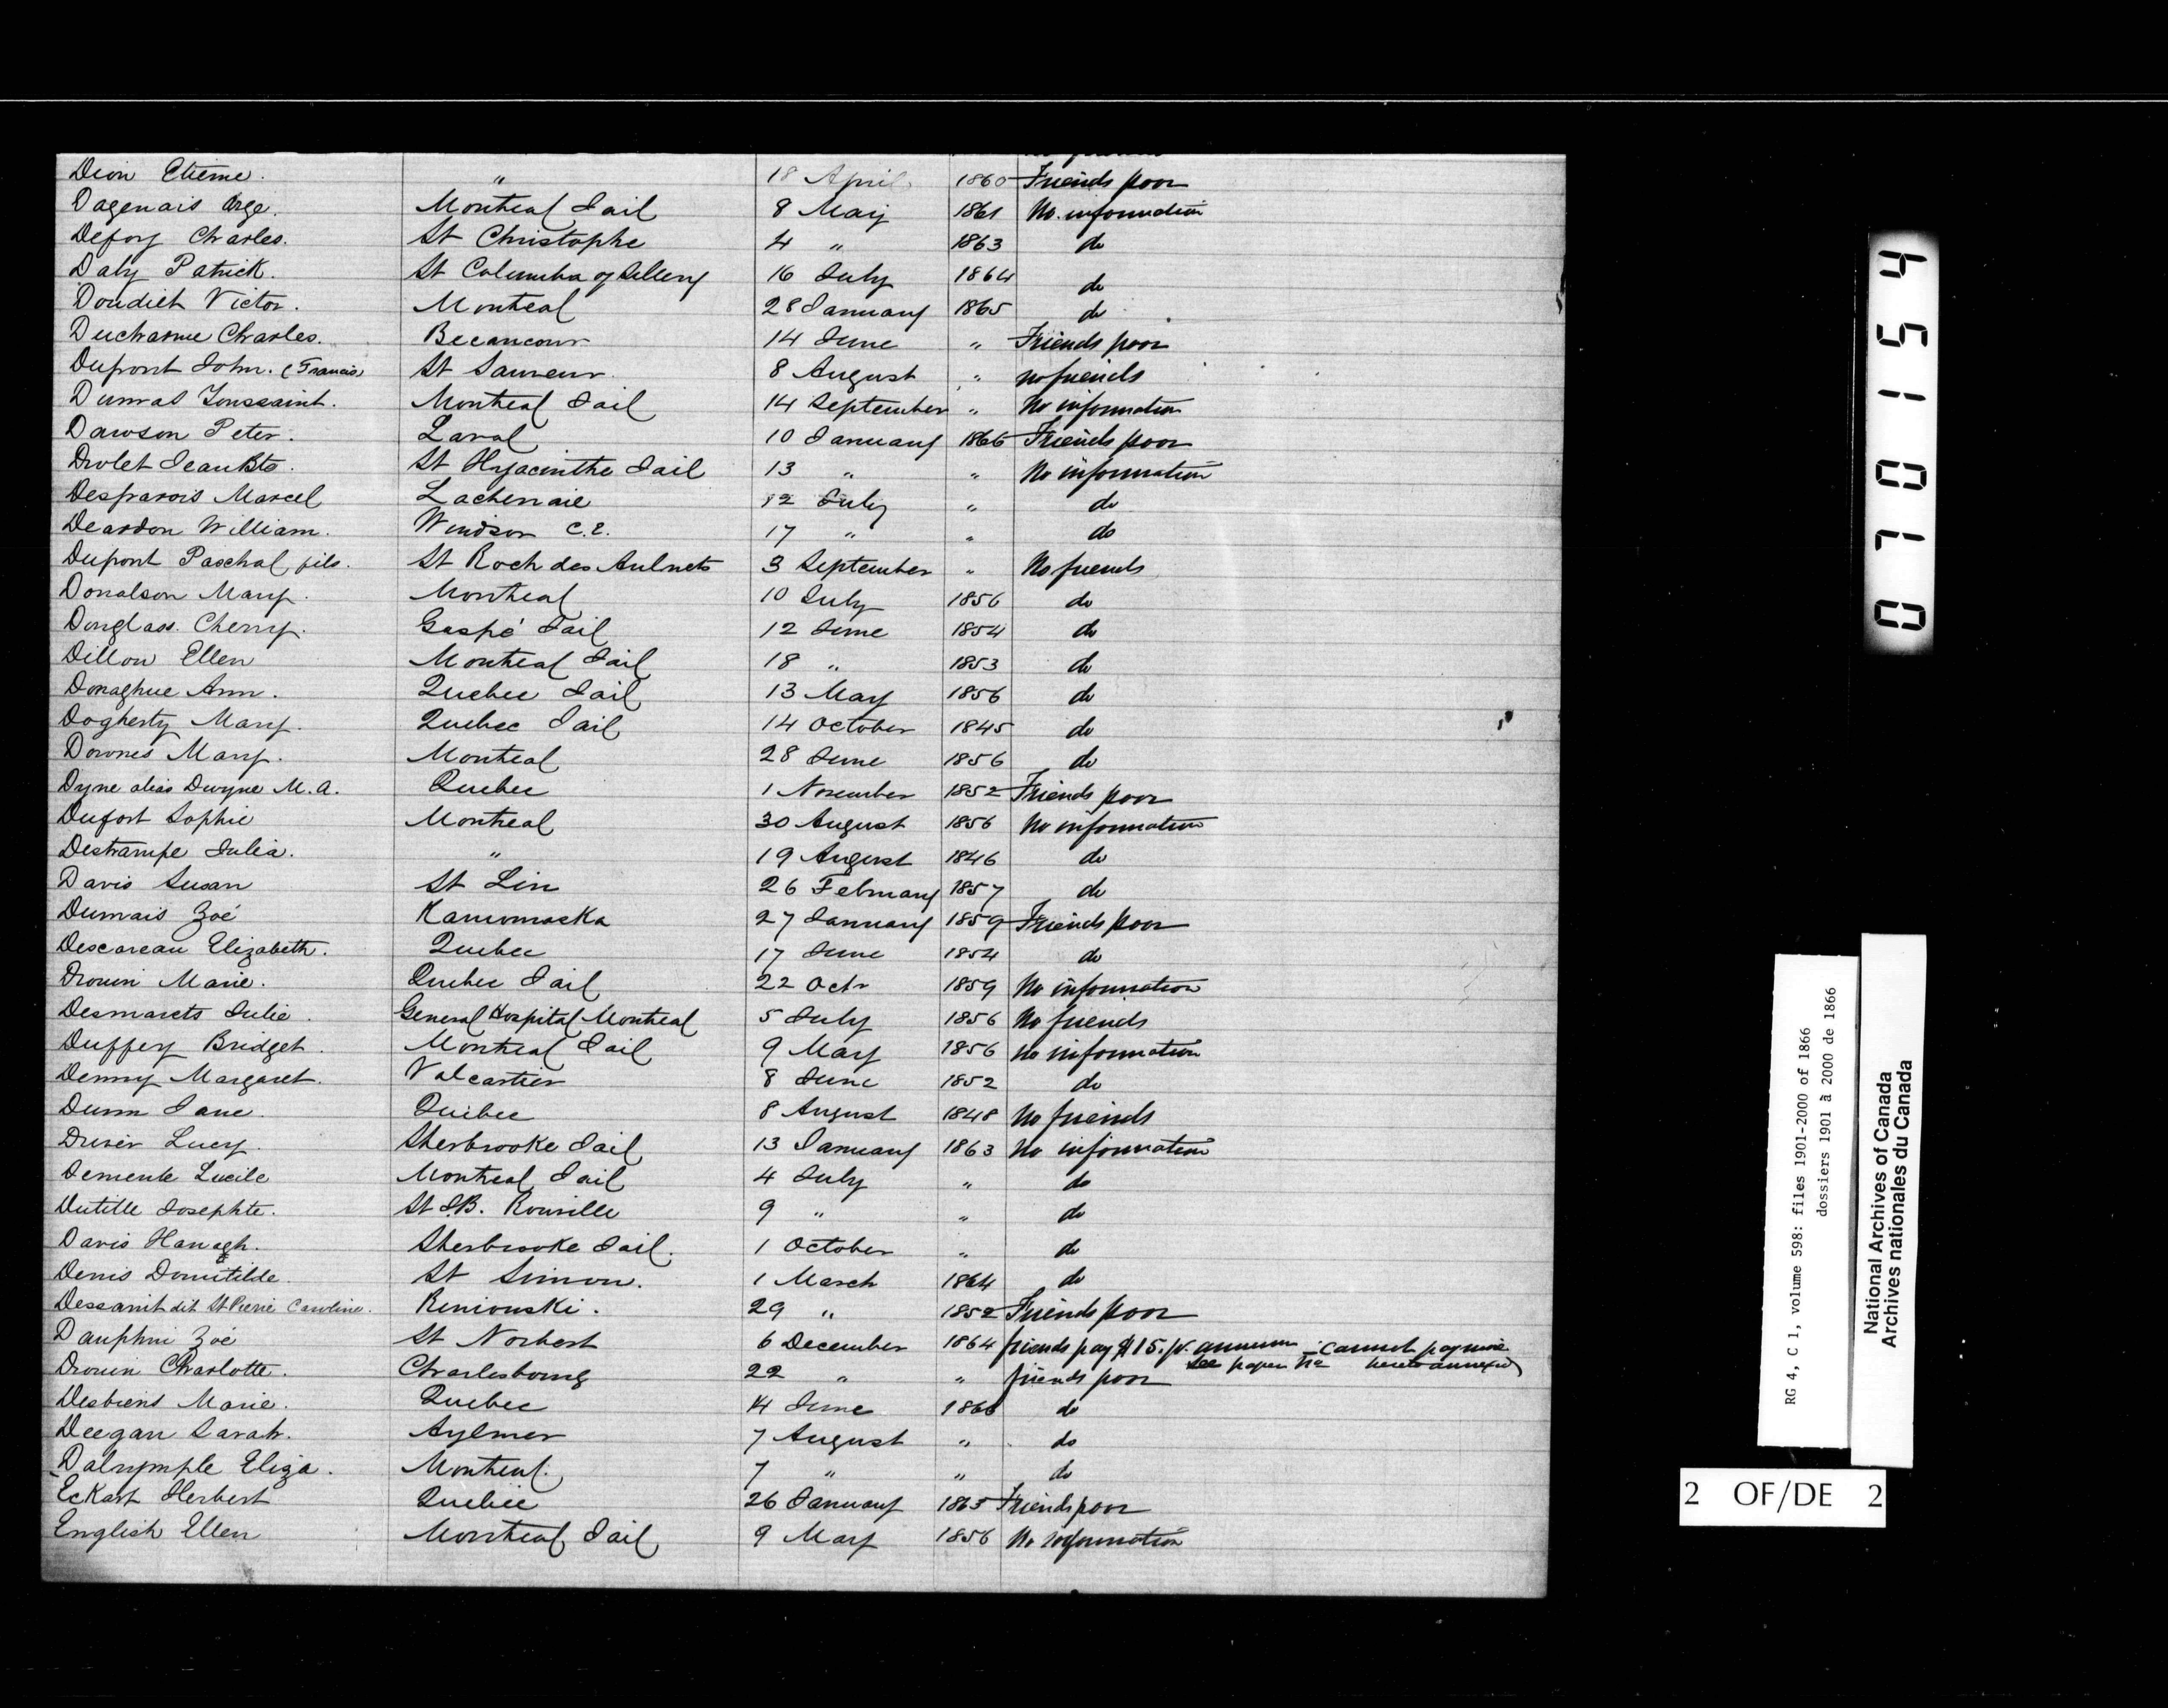 Dion Etienne. " 18 April 1860 Friends poor
Dagenais Orge. Montreal Jail 8 May 1861 No information
Defoy Charles. St Christophe 4 " 1863 do
Daly Patrick. St Columba of Sillery 16 July 1864 do
Doudiet Victor. Montreal 28 January 1865 do
Ducharme Charles. Becancour 14 June " Friends poor
Dupont John. (Francis) St Sauveur 8 August " no friends
Dumas Toussaint. Montreal Jail 14 September " No information
Dawson Peter. Laval 10 January 1866 Friends poor
Drolet Jean Bte. St Hyacinthe Jail 13 " " No information
Desparois Marcel Lachenaie 12 July " do
Deardon William. Windsor C.E. 17 " " do
Dupont Paschal fils. St Roch des Aulnets 3 September " No friends
Donalson Mary. Montreal 10 July 1856 do
Douglass. Cherry. Gaspé Jail 12 June 1854 do
Dillon Ellen Montreal Jail 18 " 1853 do
Donaghue Ann. Quebec Jail 13 May 1856 do
Dogherty Mary. Quebec Jail 14 October 1845 do
Downes Mary. Montreal 28 June 1856 do
Dyne alias Dwyne M. A. Quebec 1 November 1852 Friends poor
Dufort Sophie Montreal 30 August 1856 No information
Destrampe Julia. " 19 August 1846 do
Davis Susan St Lin 26 February 1857 do
Dumais Zoé Kamouraska 27 January 1859 Friends poor
Descareau Elizabeth. Quebec 17 June 1854 do
Drouin Marie. Quebec Jail 22 Octr 1859 No information
Desmarets Julie. General Hospital Montreal 5 July 1856 No friends
Duffey Bridget. Montreal Jail 9 May 1856 no information
Denny Margaret. Valcartier 8 June 1852 do
Dunn Jane. Quebec 8 August 1848 No friends
Driver Lucy. Sherbrooke Jail 13 January 1863 No information
Demente Lucile Montreal Jail 4 July " do
Dutille Josephte. St J.B. Rouville 9 " " do
Davis Hanagh. Sherbrooke Jail. 1 October " do
Denis Domitilde. St Simon. 1 March 1864 do
Dessaint dit St Pierre Caroline. Rimouski. 29 " 1852 Friends poor
Dauphin Zoé St Norbert 6 December 1864 friends pay $15. pr. annum - cannot pay more
see paper No hereto annexed)
Drouin Charlotte. Charlesbourg 22 " " friends poor
Desbiens Marie. Quebec 14 June 1866 do
Deegan Sarah. Aylmer 7 August " do
Dalrymple Eliza. Montreal. 7 " " do
Eckart Herbert Quebec 26 January 1865 Friends poor
English Ellen Montreal Jail 9 May 1856 No information
070154
RG 4, C 1, volume 598: files 1901-2000 of 1866
dossiers 1901 à 2000 de 1866
National Archives of Canada
Archives nationales du Canada
2 OF/DE 2